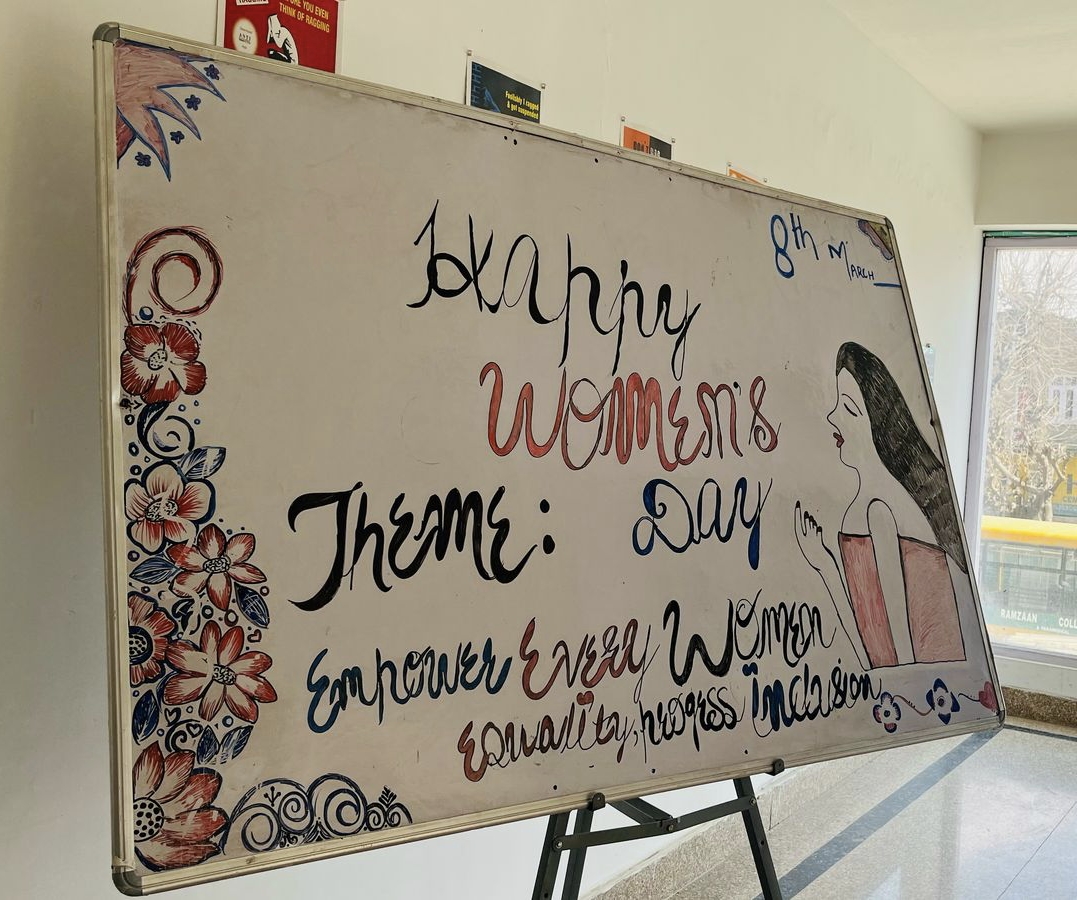 THINK OF RAGGING
Foolishly I ragged
& got suspended
8th MARCH
Happy
Women's
Theme: Day
Empower Every Women
Equality, progress inclusion
RAMZAAN COLL